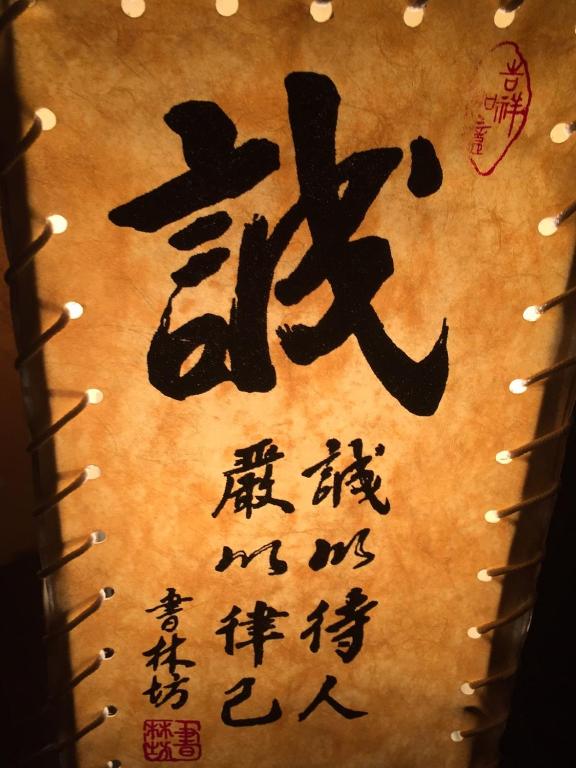 誠
誠以待人
嚴以律己
書林坊
吉祥如意
書林坊